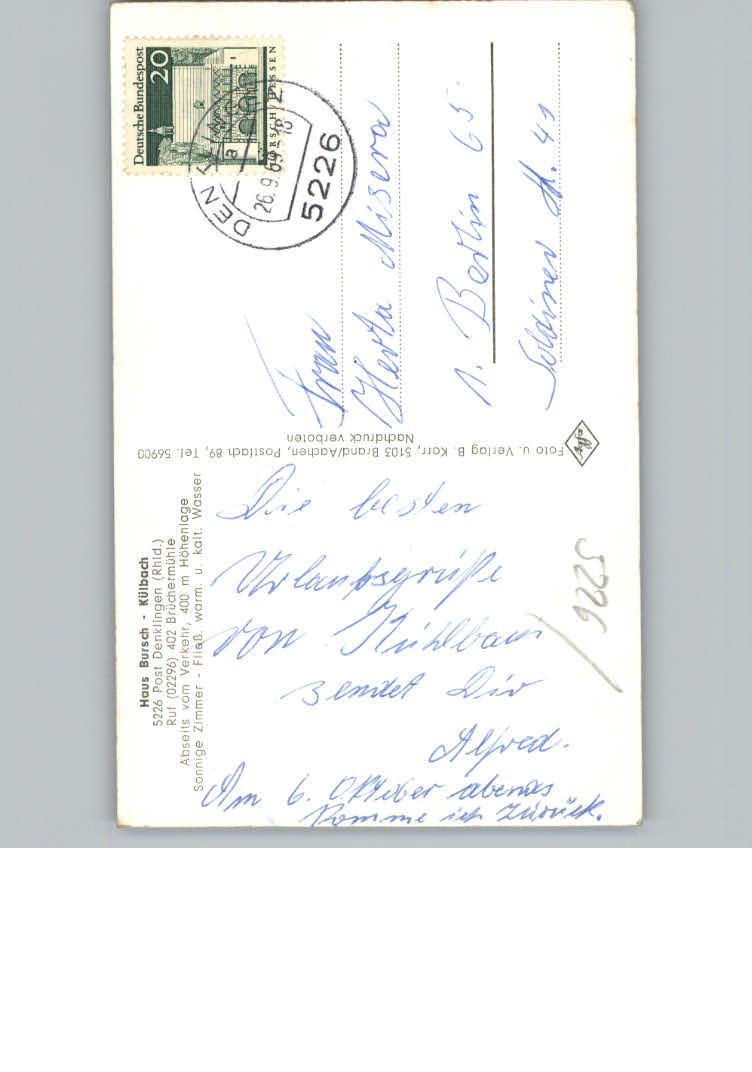 Haus Bursch - Külbach
5226 Post Denklingen (Rhld.)
Ruf (02296) 402 Brüchermühle
Abseits vom Verkehr, 400 m Höhenlage
Sonnige Zimmer - Fließ. warm. u. kalt. Wasser
Die besten
Urlaubsgrüße
von
sendet Dir
Alfred.
Am 6. Oktober abends
komme ich zurück.
5226
Foto u. Verlag B. Korr, 5103 Brand/Aachen, Postfach 89, Tel. 56900
Nachdruck verboten
Agfa
Deutsche Bundespost
20
LORSCH/HESSEN
26.9.69-18
a
5226
Frau
Herta Misera
1. Berlin 65.
Soldiner 41